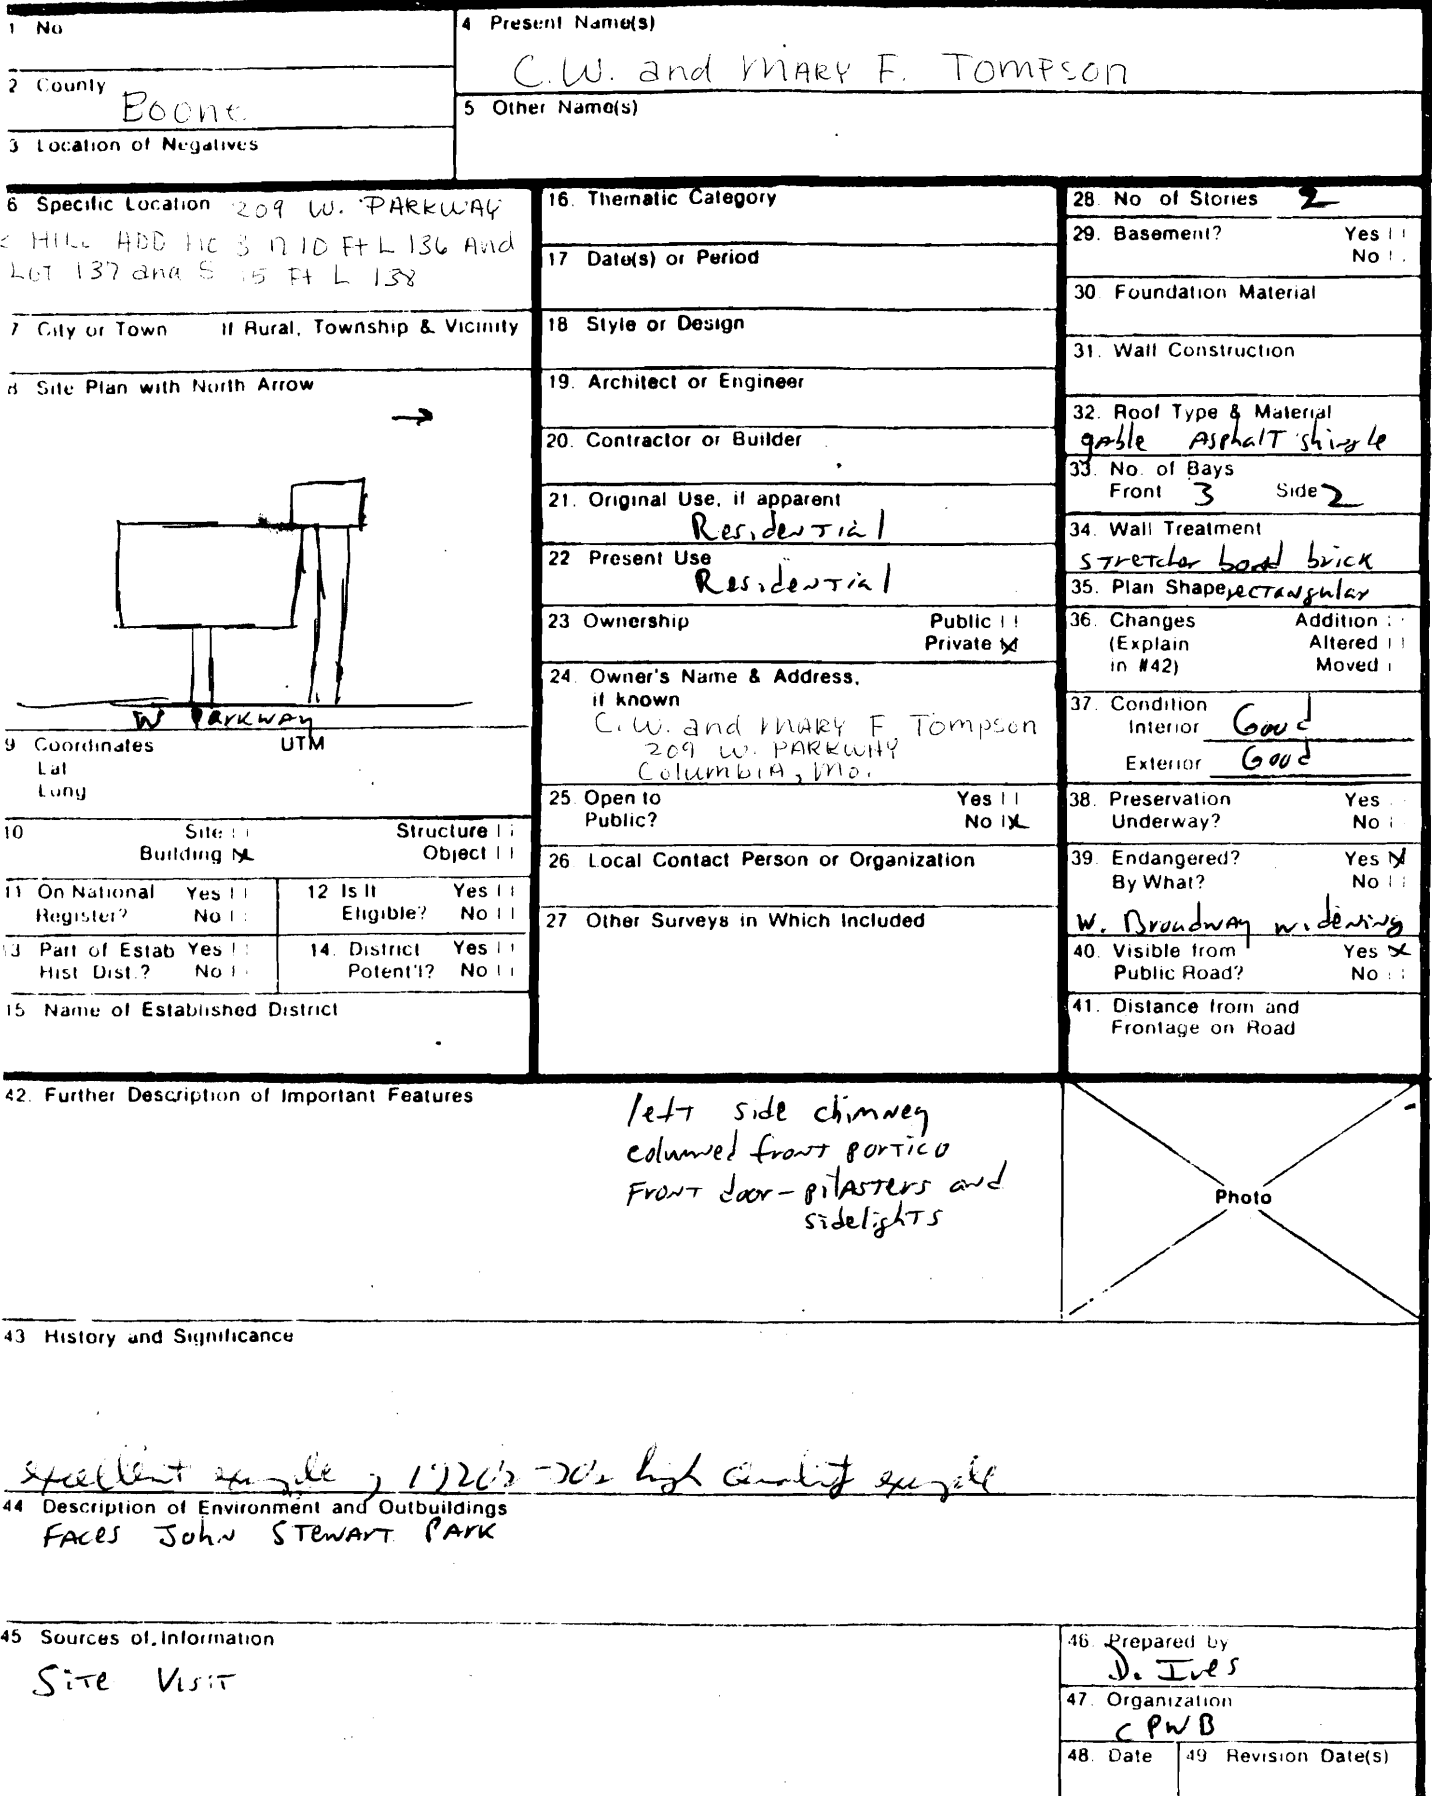 1 No
2 County
Boone
3 Location of Negatives
4 Present Name(s)
C.W. and MARY F. TOMPSON
5 Other Name(s)
6 Specific Location 209 W. PARKWAY
HILL ADD N 10 Ft L 136 And
LOT 137 and S 15 Ft L 138
7 City or Town If Rural, Township & Vicinity
8 Site Plan with North Arrow
W PARKWAY
9 Coordinates UTM
Lat
Long
10 Site Structure
Building X Object
11 On National Register? Yes No
12 Is It Eligible? Yes No
13 Part of Estab Hist Dist.? Yes No
14. District Potent'l? Yes No
15 Name of Established District
16. Thematic Category
17 Date(s) or Period
18 Style or Design
19. Architect or Engineer
20. Contractor or Builder
21. Original Use, if apparent
Residential
22 Present Use
Residential
23 Ownership Public
Private X
24. Owner's Name & Address,
if known
C.W. and MARY F. Tompson
209 W. PARKWAY
Columbia, Mo.
25. Open to Yes
Public? No X
26. Local Contact Person or Organization
27 Other Surveys in Which Included
28. No of Stories 2
29. Basement? Yes
No
30. Foundation Material
31. Wall Construction
32. Roof Type & Material
gable Asphalt shingle
33. No. of Bays
Front 3 Side 2
34. Wall Treatment
stretcher bond brick
35. Plan Shape rectangular
36. Changes Addition
(Explain Altered
in #42) Moved
37. Condition
Interior Good
Exterior Good
38. Preservation Yes
Underway? No
39. Endangered? Yes X
By What? No
W. Broadway widening
40. Visible from Yes X
Public Road? No
41. Distance from and
Frontage on Road
42. Further Description of Important Features
left side chimney
columned front portico
Front door - pilasters and
sidelights
Photo
43 History and Significance
excellent example, 1920's-30s high quality example
44 Description of Environment and Outbuildings
FACES John STEWART PARK
45 Sources of Information
Site Visit
46. Prepared by
D. Ives
47. Organization
CPWB
48. Date
49 Revision Date(s)